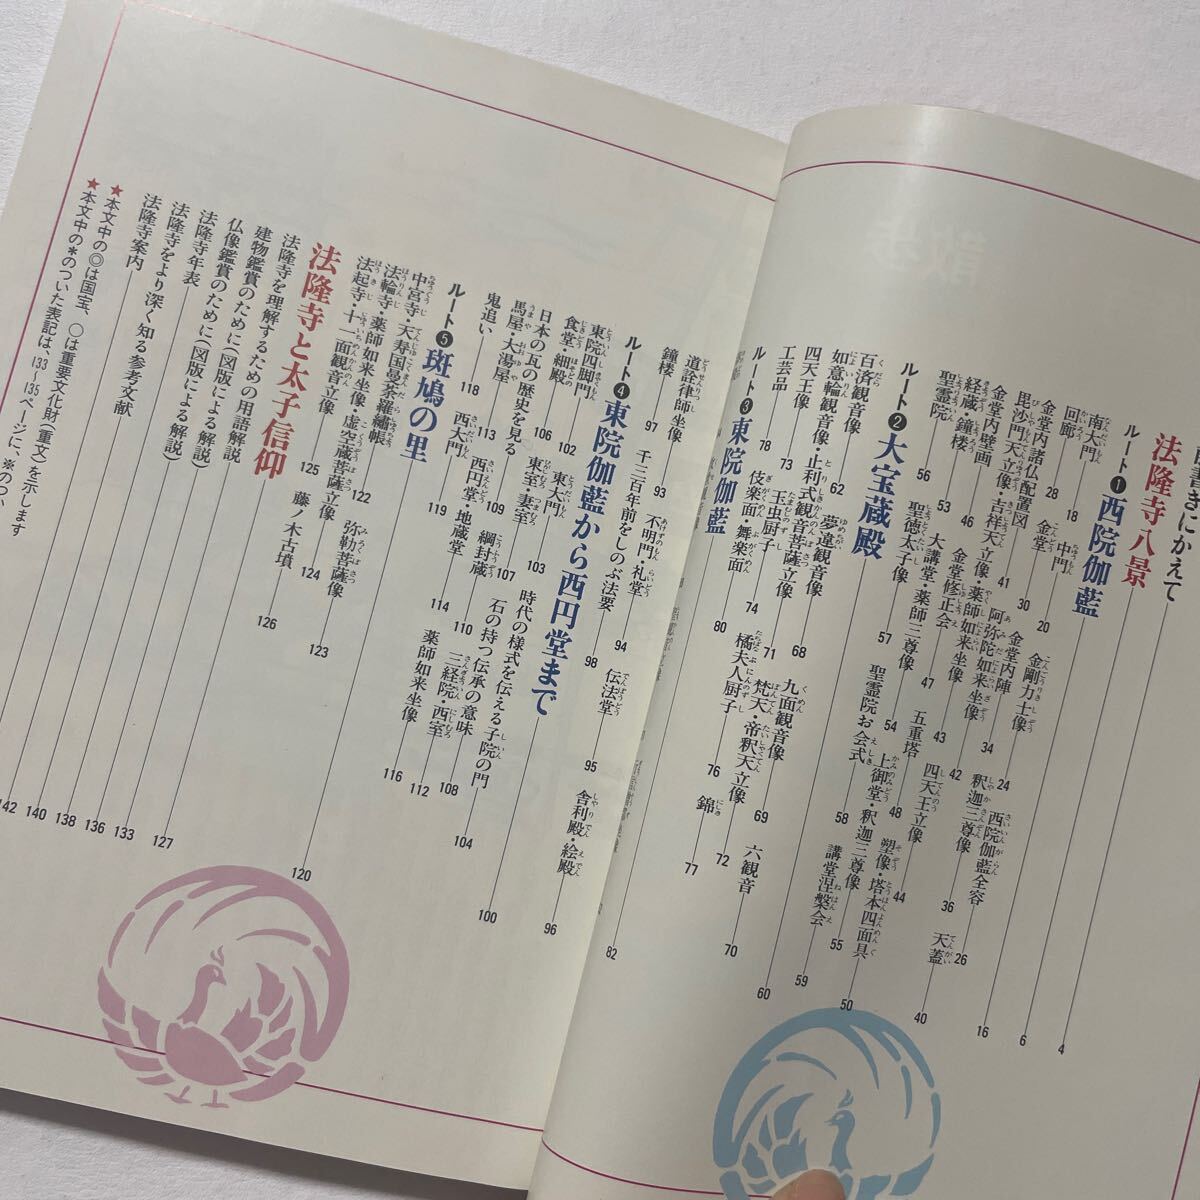 書きにかえて 4
法隆寺八景 6
ルート❶西院伽藍 16
南大門 18 中門 20 金剛力士像 24 西院伽藍全容 26
回廊 28 金堂 30 金堂内陣 34 釈迦三尊像 36 天蓋 40
金堂内諸仏配置図 41 阿弥陀如来坐像 42
毘沙門天立像・吉祥天立像・薬師如来坐像 43 四天王立像 44
金堂内壁画 46 金堂修正会 47 五重塔 48 塑像・塔本四面具 50
経蔵・鐘楼 53 大講堂・薬師三尊像 54 上御堂・釈迦三尊像 55
聖霊院 56 聖徳太子像 57 聖霊院お会式 58 講堂涅槃会 59
ルート❷大宝蔵殿 60
百済観音像 62 夢違観音像 68 九面観音像 69 六観音 70
如意輪観音像・止利式観音菩薩立像 71 梵天・帝釈天立像 72
四天王像 73 玉虫厨子 74 橘夫人厨子 76 錦 77
工芸品 78 伎楽面・舞楽面 80
ルート❸東院伽藍 82
道詮律師坐像 93 不明門・礼堂 94 伝法堂 95 舎利殿・絵殿 96
鐘楼 97 千三百年前をしのぶ法要 98
ルート❹東院伽藍から西円堂まで 100
東院四脚門 102 東大門 103 時代の様式を伝える子院の門 104
食堂・細殿 106 東室・妻室 107 石の持つ伝承の意味 108
日本の瓦の歴史を見る 109 綱封蔵 110 三経院・西室 112
馬屋・大湯屋 113 西円堂・地蔵堂 114 薬師如来坐像 116
鬼追い 118 西大門 119
ルート❺斑鳩の里 120
中宮寺・天寿国曼荼羅繡帳 122 弥勒菩薩像 123
法輪寺・薬師如来坐像・虚空蔵菩薩立像 124
法起寺・十一面観音立像 125 藤ノ木古墳 126
法隆寺と太子信仰 127
法隆寺を理解するための用語解説 133
建物鑑賞のために(図版による解説) 136
仏像鑑賞のために(図版による解説) 138
法隆寺年表 140
法隆寺をより深く知る参考文献
法隆寺案内 142
★本文中の◎は国宝、○は重要文化財(重文)を示します
★本文中の＊のついた表記は、133〜135ページに、※のつい